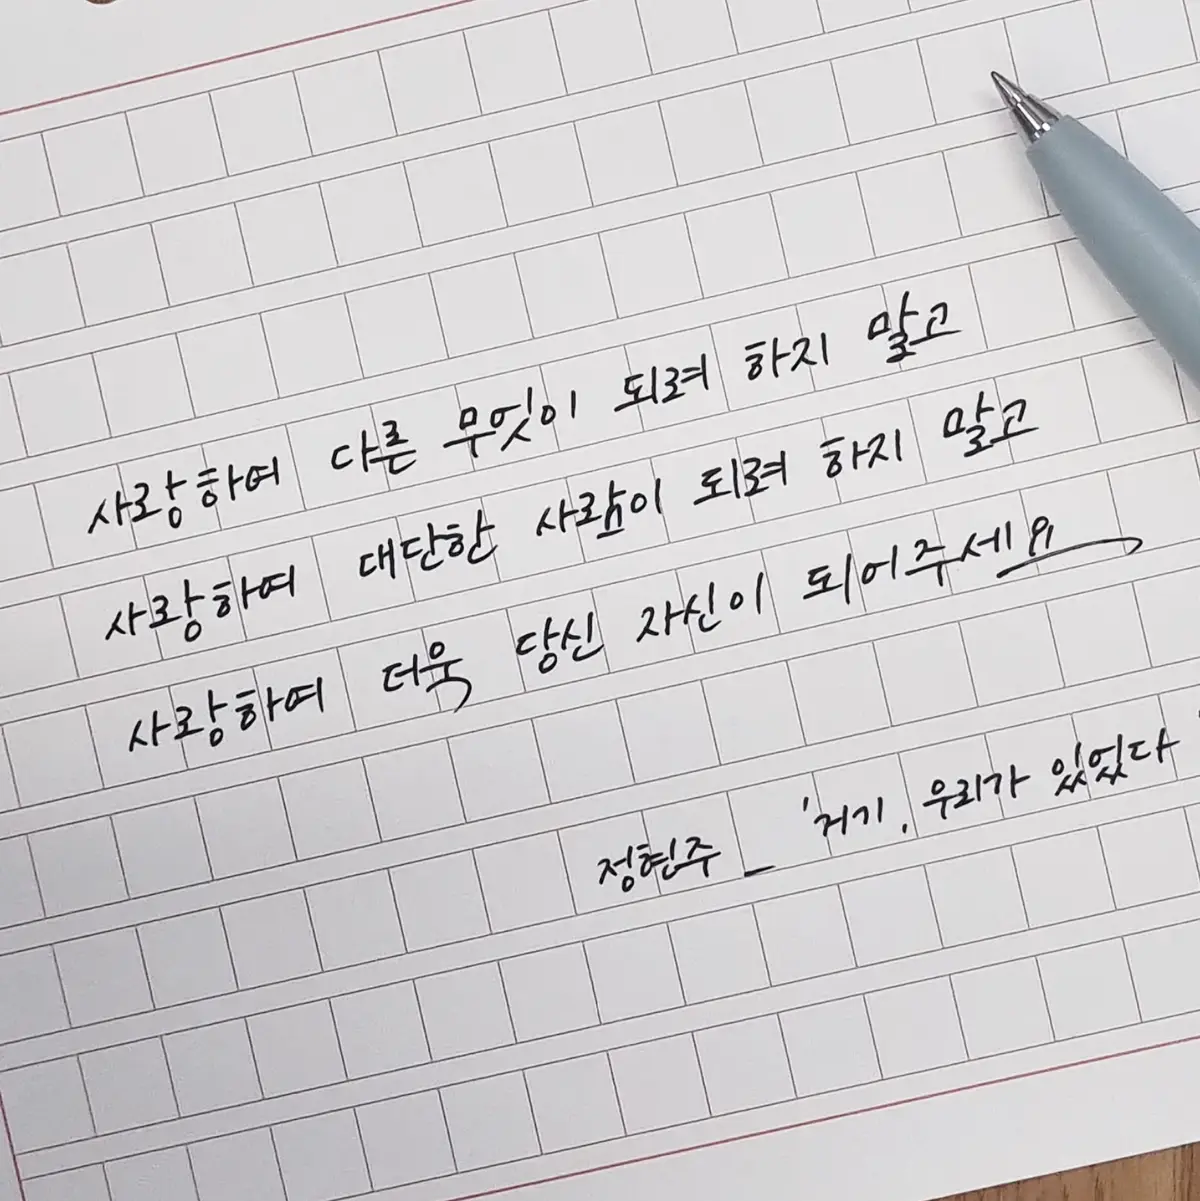 사랑하여 다른 무엇이 되려 하지 말고
사랑하여 대단한 사람이 되려 하지 말고
사랑하여 더욱 당신 자신이 되어주세요
정현주 _ '거기, 우리가 있었다'